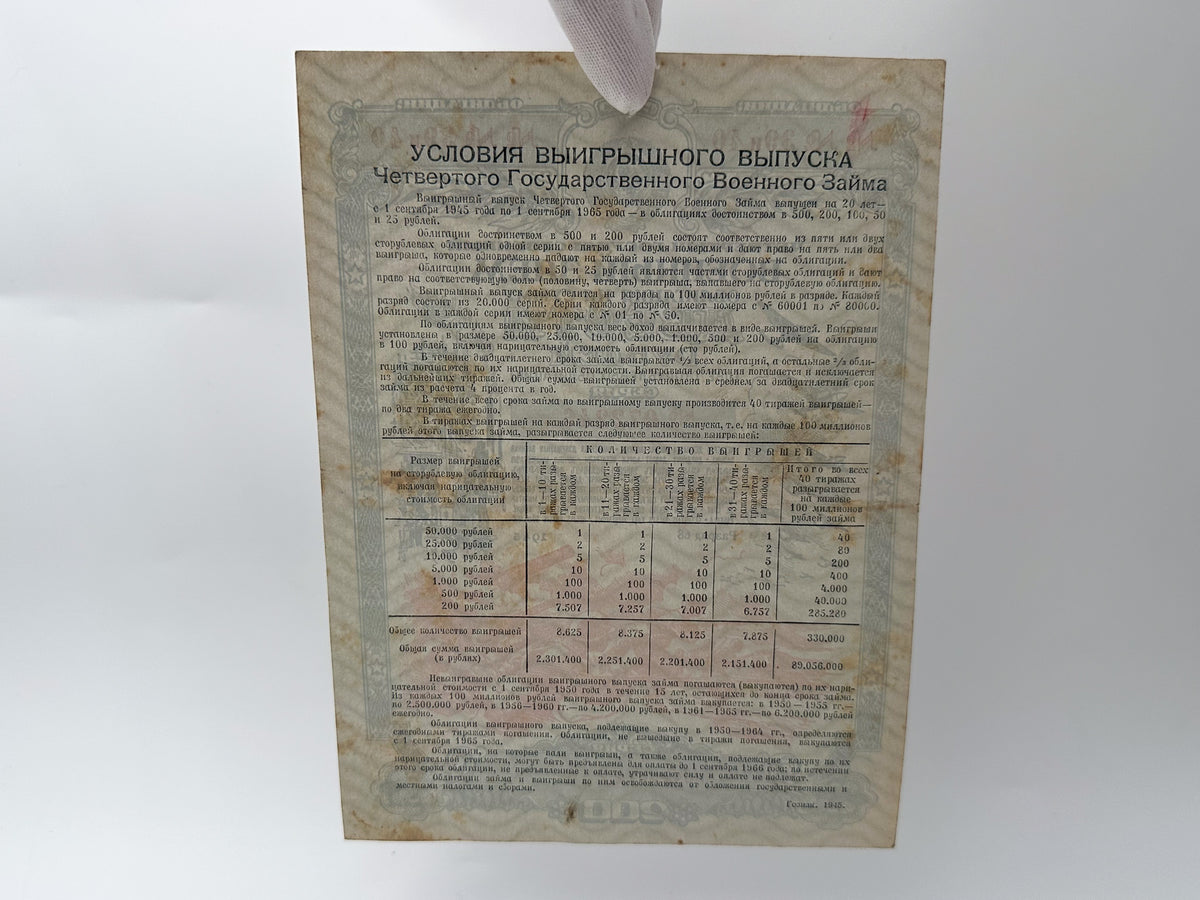 УСЛОВИЯ ВЫИГРЫШНОГО ВЫПУСКА
Четвертого Государственного Военного Займа
Выигрышный выпуск Четвертого Государственного Военного Займа выпущен на 20 лет—
с 1 сентября 1945 года по 1 сентября 1965 года — в облигациях достоинством в 500, 200, 100, 50
и 25 рублей.
Облигации достоинством в 500 и 200 рублей состоят соответственно из пяти или двух
сторублевых облигаций одной серии с пятью или двумя номерами и дают право на пять или два
выигрыша, которые одновременно падают на каждый из номеров, обозначенных на облигации.
Облигации достоинством в 50 и 25 рублей являются частями сторублевых облигаций и дают
право на соответствующую долю (половину, четверть) выигрыша, выпавшего на сторублевую облигацию.
Выигрышный выпуск займа делится на разряды по 100 миллионов рублей в разряде. Каждый
разряд состоит из 20.000 серий. Серии каждого разряда имеют номера с № 60001 по № 80000.
Облигации в каждой серии имеют номера с № 01 по № 50.
По облигациям выигрышного выпуска весь доход выплачивается в виде выигрышей. Выигрыши
установлены в размере 50.000, 25.000, 10.000, 5.000, 1.000, 500 и 200 рублей на облигацию
в 100 рублей, включая нарицательную стоимость облигации (сто рублей).
В течение двадцатилетнего срока займа выигрывают 1/3 всех облигаций, а остальные 2/3 обли-
гаций погашаются по их нарицательной стоимости. Выигравшая облигация погашается и исключается
из дальнейших тиражей. Общая сумма выигрышей установлена в среднем за двадцатилетний срок
займа из расчета 4 процента в год.
В течение всего срока займа по выигрышному выпуску производится 40 тиражей выигрышей—
по два тиража ежегодно.
В тиражах выигрышей на каждый разряд выигрышного выпуска, т. е. на каждые 100 миллионов
рублей этого выпуска займа, разыгрывается следующее количество выигрышей:
Размер выигрышей
на сторублевую облигацию,
включая нарицательную
стоимость облигации
КОЛИЧЕСТВО ВЫИГРЫШЕЙ
в 1—10 ти-
ражах разы-
грывается
в каждом
в 11—20 ти-
ражах разы-
грывается
в каждом
в 21—30 ти-
ражах разы-
грывается
в каждом
в 31—40 ти-
ражах разы-
грывается
в каждом
Итого во всех
40 тиражах
разыгрывается
на каждые
100 миллионов
рублей займа
50.000 рублей 1 1 1 1 40
25.000 рублей 2 2 2 2 80
10.000 рублей 5 5 5 5 200
5.000 рублей 10 10 10 10 400
1.000 рублей 100 100 100 100 4.000
500 рублей 1.000 1.000 1.000 1.000 40.000
200 рублей 7.507 7.257 7.007 6.757 285.280
Общее количество выигрышей 8.625 8.375 8.125 7.875 330.000
Общая сумма выигрышей
(в рублях) 2.301.400 2.251.400 2.201.400 2.151.400 89.056.000
Невыигравшие облигации выигрышного выпуска займа погашаются (выкупаются) по их нари-
цательной стоимости с 1 сентября 1950 года в течение 15 лет, остающихся до конца срока займа.
Из каждых 100 миллионов рублей выигрышного выпуска займа выкупается: в 1950 — 1955 гг.—
по 2.500.000 рублей, в 1956—1960 гг.—по 4.200.000 рублей, в 1961—1965 гг.—по 6.200.000 рублей
ежегодно.
Облигации выигрышного выпуска, подлежащие выкупу в 1950—1964 гг., определяются
ежегодными тиражами погашения. Облигации, не вышедшие в тиражи погашения, выкупаются
с 1 сентября 1965 года.
Облигации, на которые пали выигрыши, а также облигации, подлежащие выкупу по их
нарицательной стоимости, могут быть предъявлены для оплаты до 1 сентября 1966 года; по истечении
этого срока облигации, не предъявленные к оплате, утрачивают силу и оплате не подлежат.
Облигации займа и выигрыши по ним освобождаются от обложения государственными и
местными налогами и сборами.
Гознак. 1945.